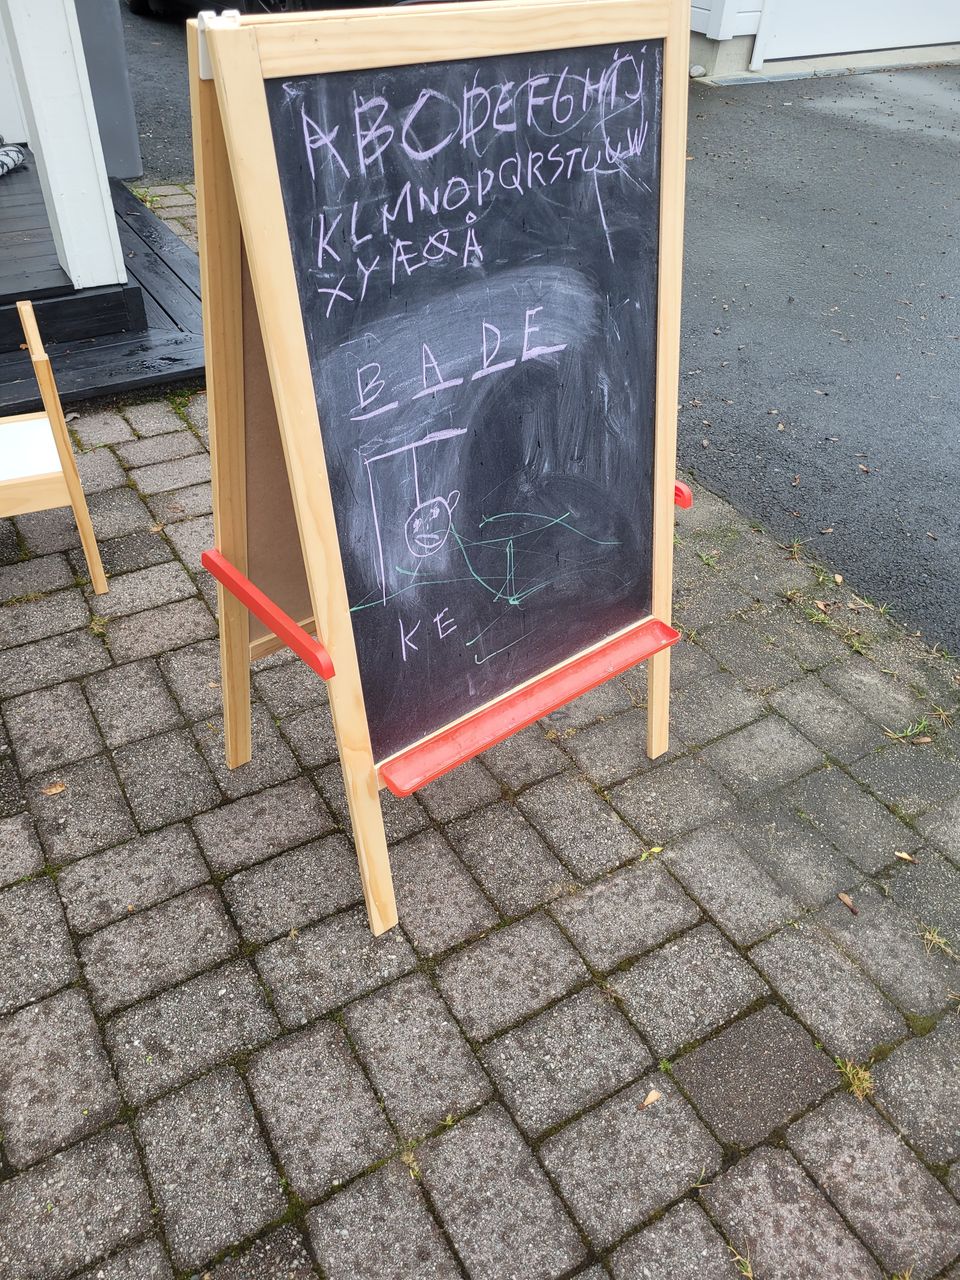 ABCDEFGHIJ
KLMNOPQRSTUVW
XYÆØÅ
BADE
KE